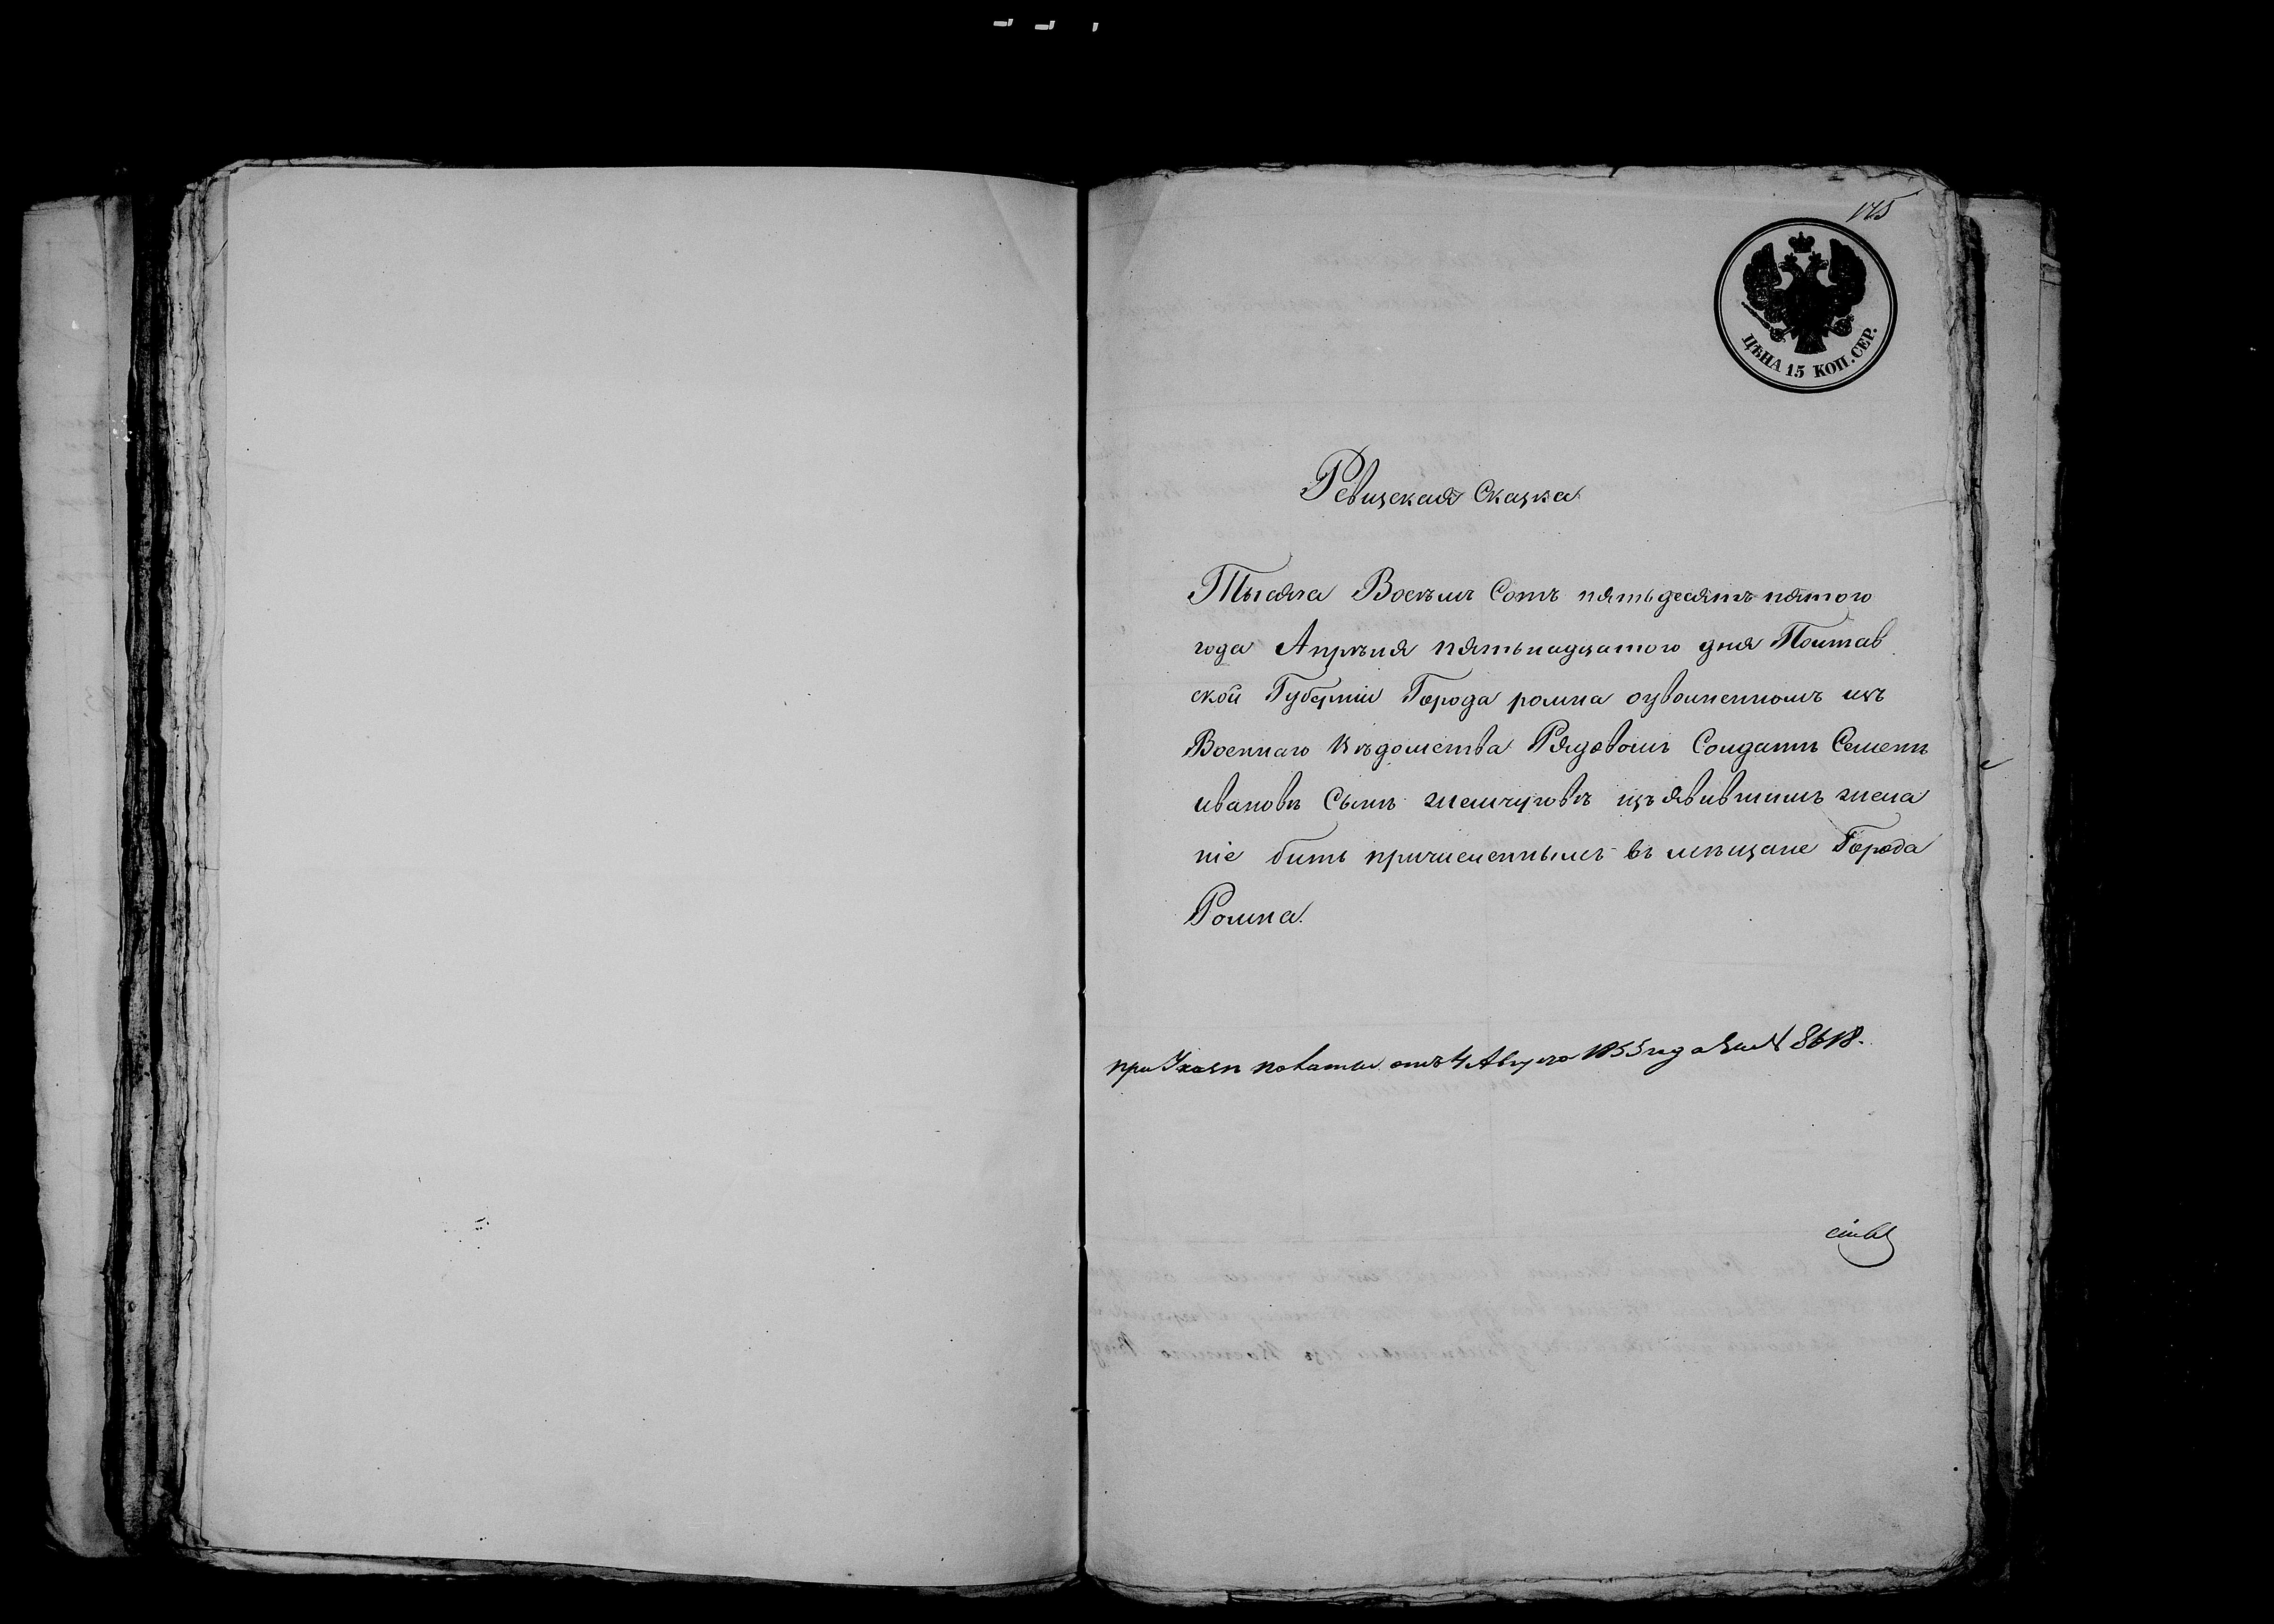 175
ЦѢНА 15 КОП. СЕР.
Ревизская Сказка
Тысяча Восѣмъ Сотъ пятьдесятъ пятого
года Апрѣля пятьнадцатого дня Полтав
ской Губерніи Города ромна оувольненномъ изъ
Военнаго Вѣдомства Рядовомъ Солдатѣ Семенѣ
ивановѣ Сынѣ жемчуговѣ изъявившимъ жела
ніе бить причисленнымъ въ мѣщане Города
Ромна.
при Указѣ палаты отъ 4 Августа 1855 года за № 8618.